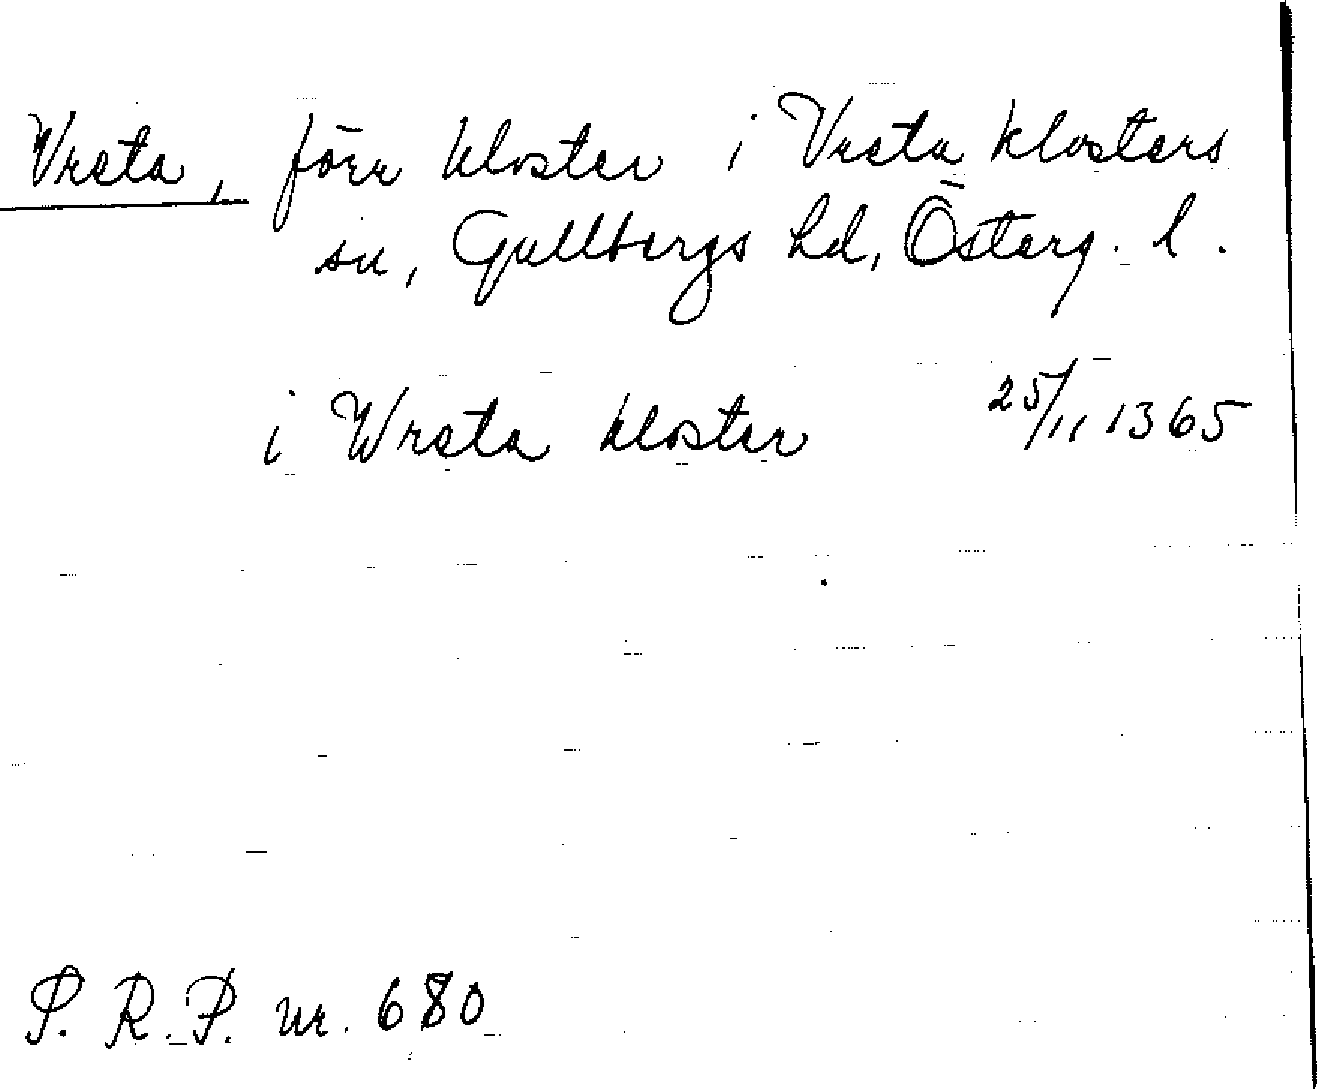 Vreta, förr kloster i Vreta klosters
sn, Gullbergs hd, Österg. l.
i Wreta kloster 25/11 1365
S. R. P. nr. 680